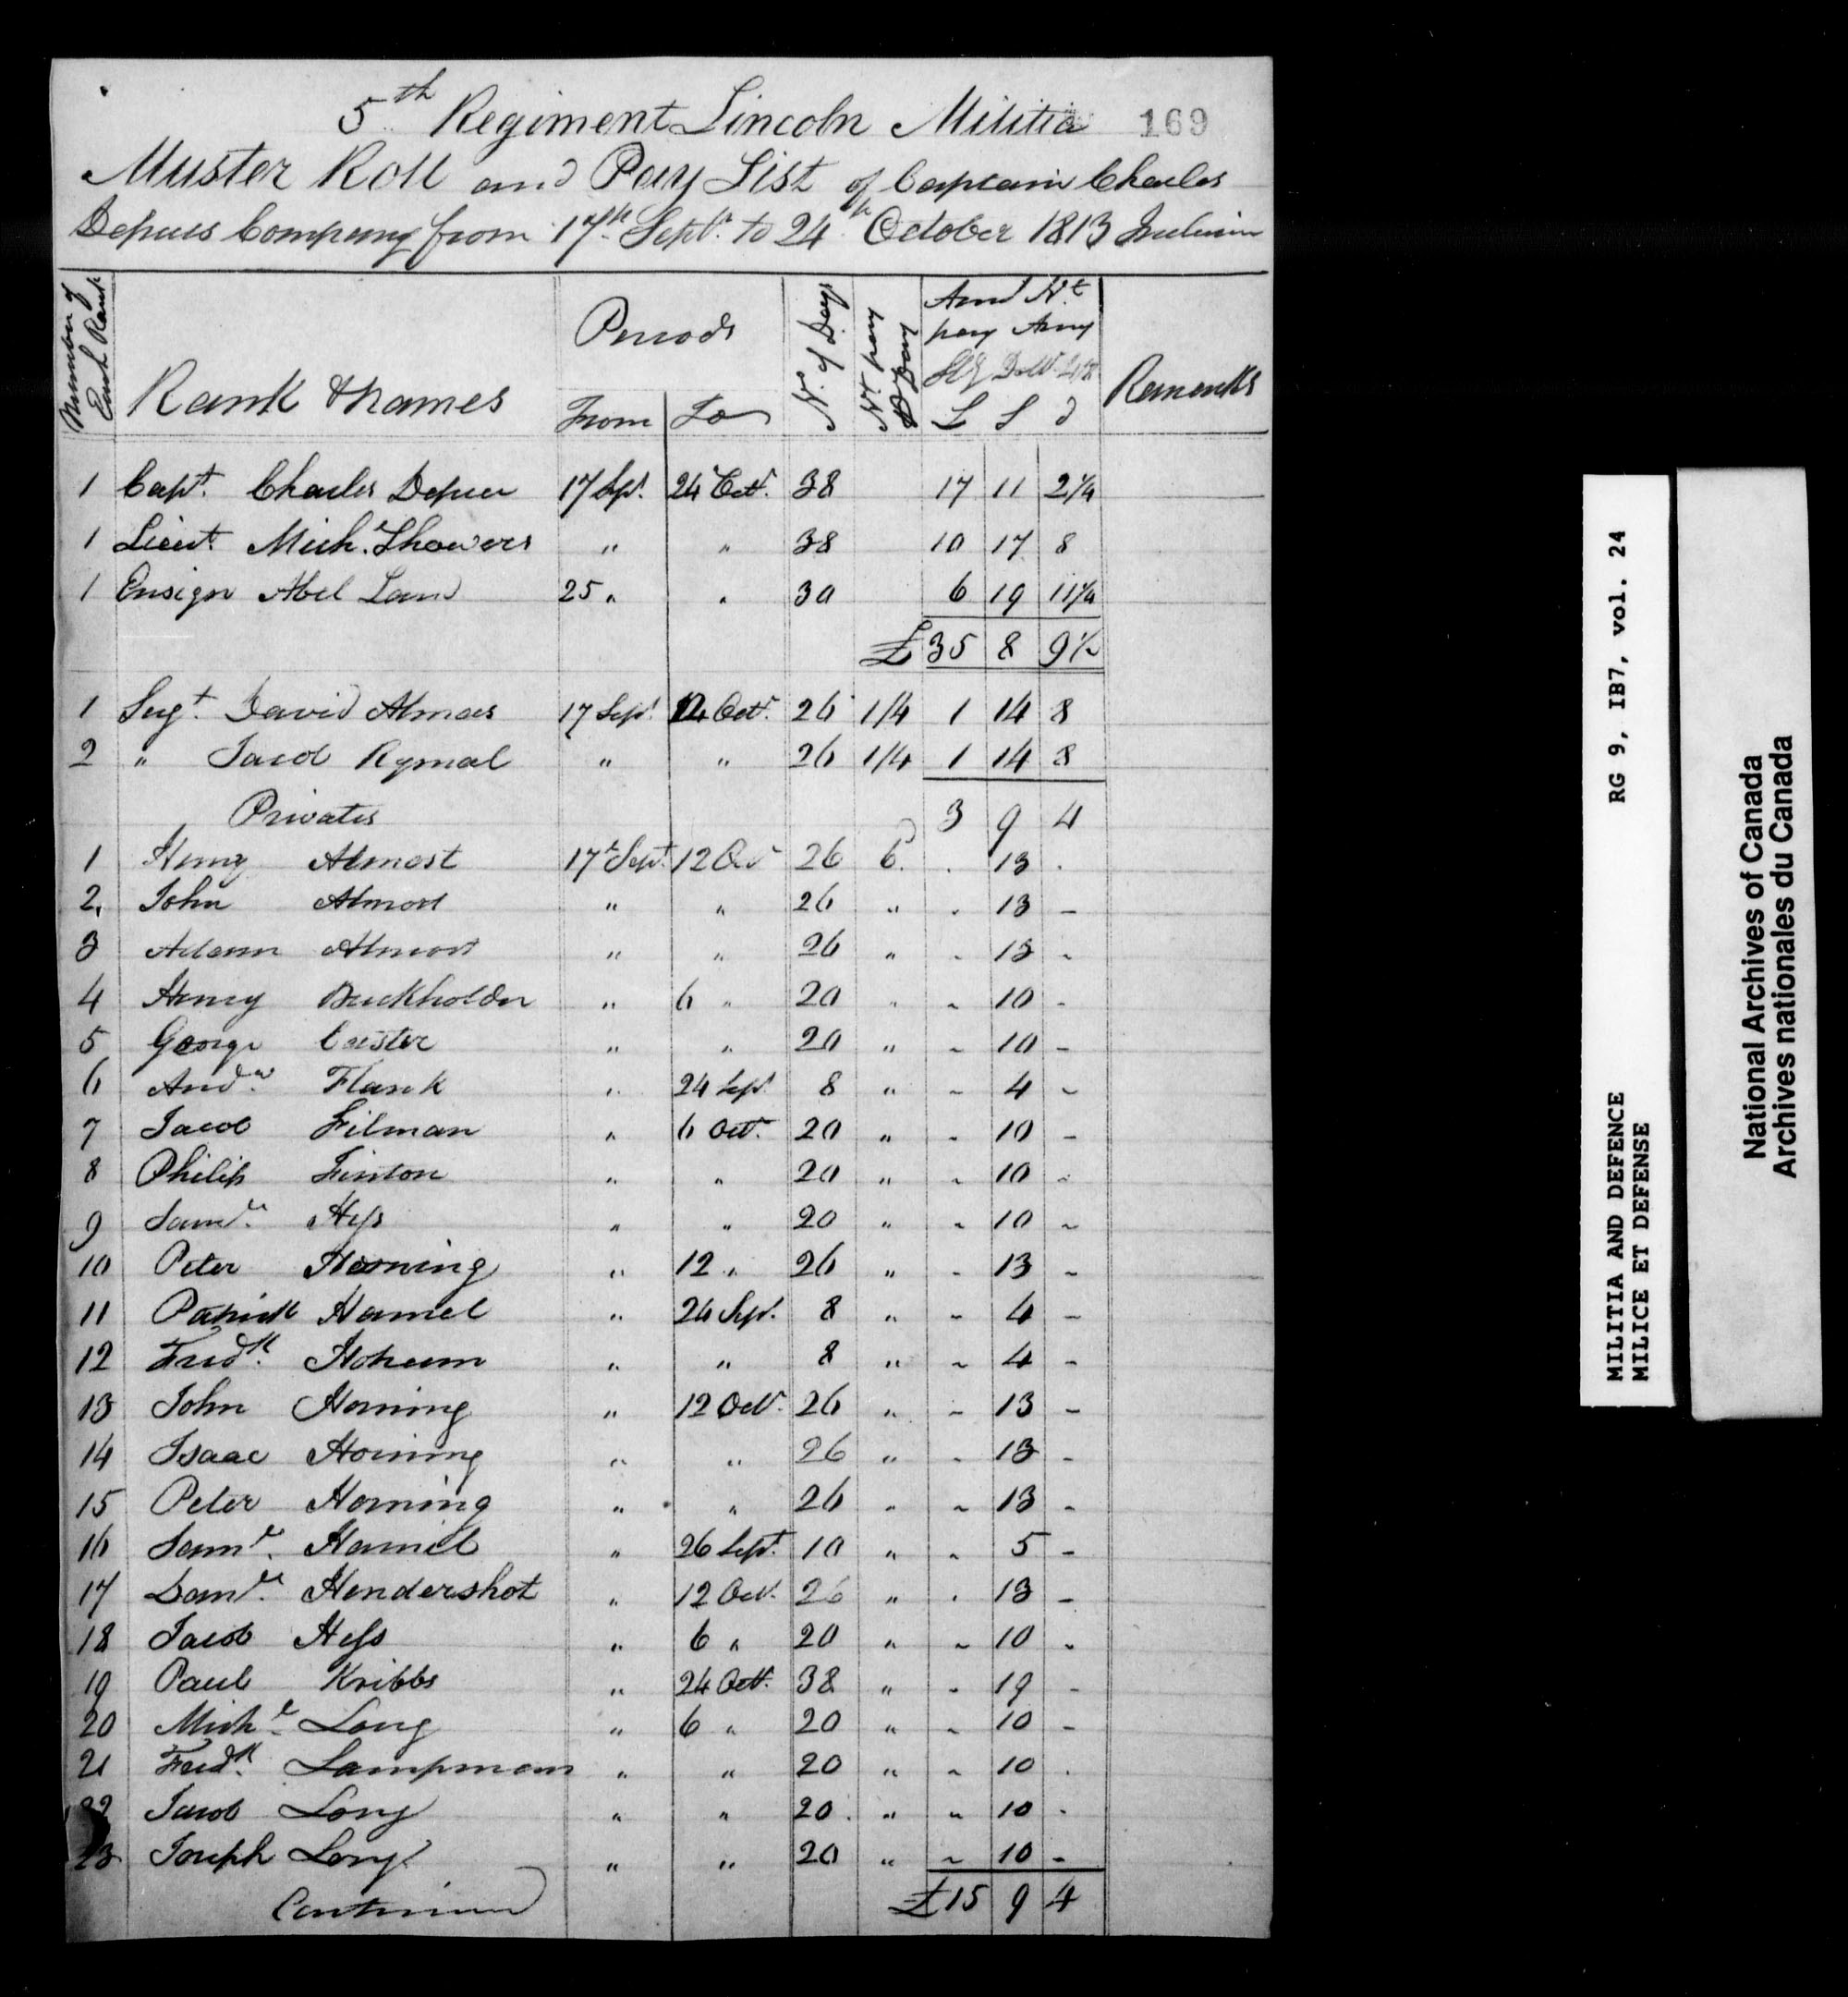 5th Regiment Lincoln Militia 169
Muster Roll and Pay List of Captain Charles
Depues Company from 17th Sept. to 24th October 1813 Inclusive
Number of Each Rank
Rank & Names
Periods
From To
No. of Days
Nt. pay P Day
Amt Nt.
pay Army
£ S d
Remarks
1 Capt. Charles Depue 17 Sept. 24 Octr. 38 17 11 2 1/4
1 Lieut. Mich.l Showers " " 38 10 17 8
1 Ensign Abel Land 25 " " 30 6 19 11 1/4
£ 35 8 9 1/2
1 Sergt. David Almas 17 Sept. 12 Octr. 26 1/4 1 14 8
2 " Jacob Rymal " " 26 1/4 1 14 8
Privates 3 9 4
1 Henry Almost 17th Sept. 12 Oct 26 6d. . 13 .
2. John Almost " " 26 " - 13 -
3 Adam Almost " " 26 " - 13 -
4 Henry Buckholder " 6 " 20 " - 10 -
5 George Caester " " 20 " - 10 -
6 Andw. Flank " 24 Sept 8 " - 4 -
7 Jacob Filman " 6 Octr. 20 " - 10 -
8 Philip Finton " " 20 " - 10 -
9 Saml. Hess " " 20 " - 10 -
10 Peter Horning " 12 " 26 " - 13 -
11 Patrick Hamel " 24 Sept. 8 " - 4 -
12 Fredk. Hokum " " 8 " - 4 -
13 John Horning " 12 Octr. 26 " - 13 -
14 Isaac Horning " " 26 " - 13 -
15 Peter Horning " " 26 " - 13 -
16 Saml. Hamil " 26 Sept. 10 " - 5 -
17 Danl. Hendershot " 12 Oct. 26 " - 13 -
18 Jacob Hess " 6 " 20 " - 10 -
19 Paul Kribbs " 24 Octr. 38 " - 19 -
20 Michl. Long " 6 " 20 " - 10 -
21 Fredk. Lampman " " 20 " - 10 .
22 Jacob Long " " 20 " " 10 -
23 Joseph Long " " 20 " - 10 -
Continued £ 15 9 4
MILITIA AND DEFENCE RG 9, IB7, vol. 24
MILICE ET DEFENSE
National Archives of Canada
Archives nationales du Canada